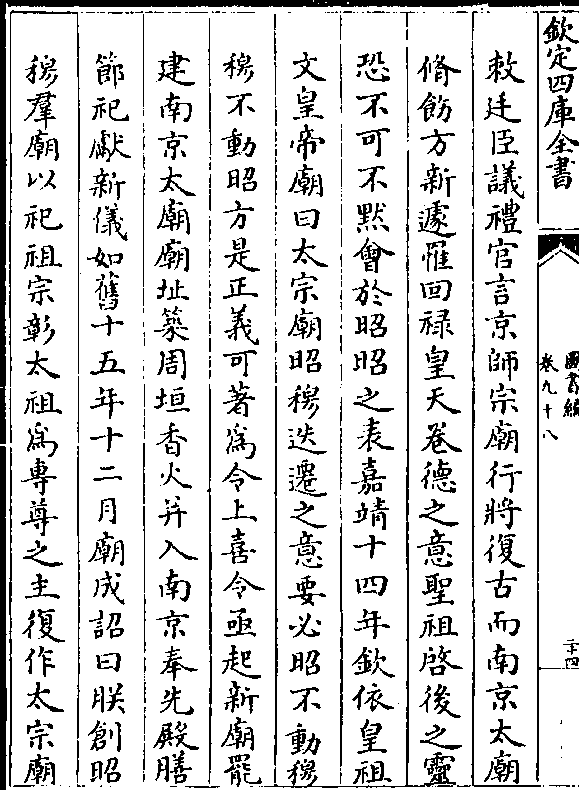 欽定四庫全書
圖書編
卷九十八
二十四
敕廷臣議禮官言京師宗廟行將復古而南京太廟
脩飭方新遽罹回禄皇天眷德之意聖祖啓後之靈
恐不可不黙會於昭昭之表嘉靖十四年欽依皇祖
文皇帝廟曰太宗廟昭穆迭遷之意要必昭不動穆
穆不動昭方是正義可著為令上喜令亟起新廟罷
建南京太廟廟址築周垣香火并入南京奉先殿膳
節祀獻新儀如舊十五年十二月廟成詔曰朕創昭
穆羣廟以祀祖宗彰太祖為專尊之主復作太宗廟